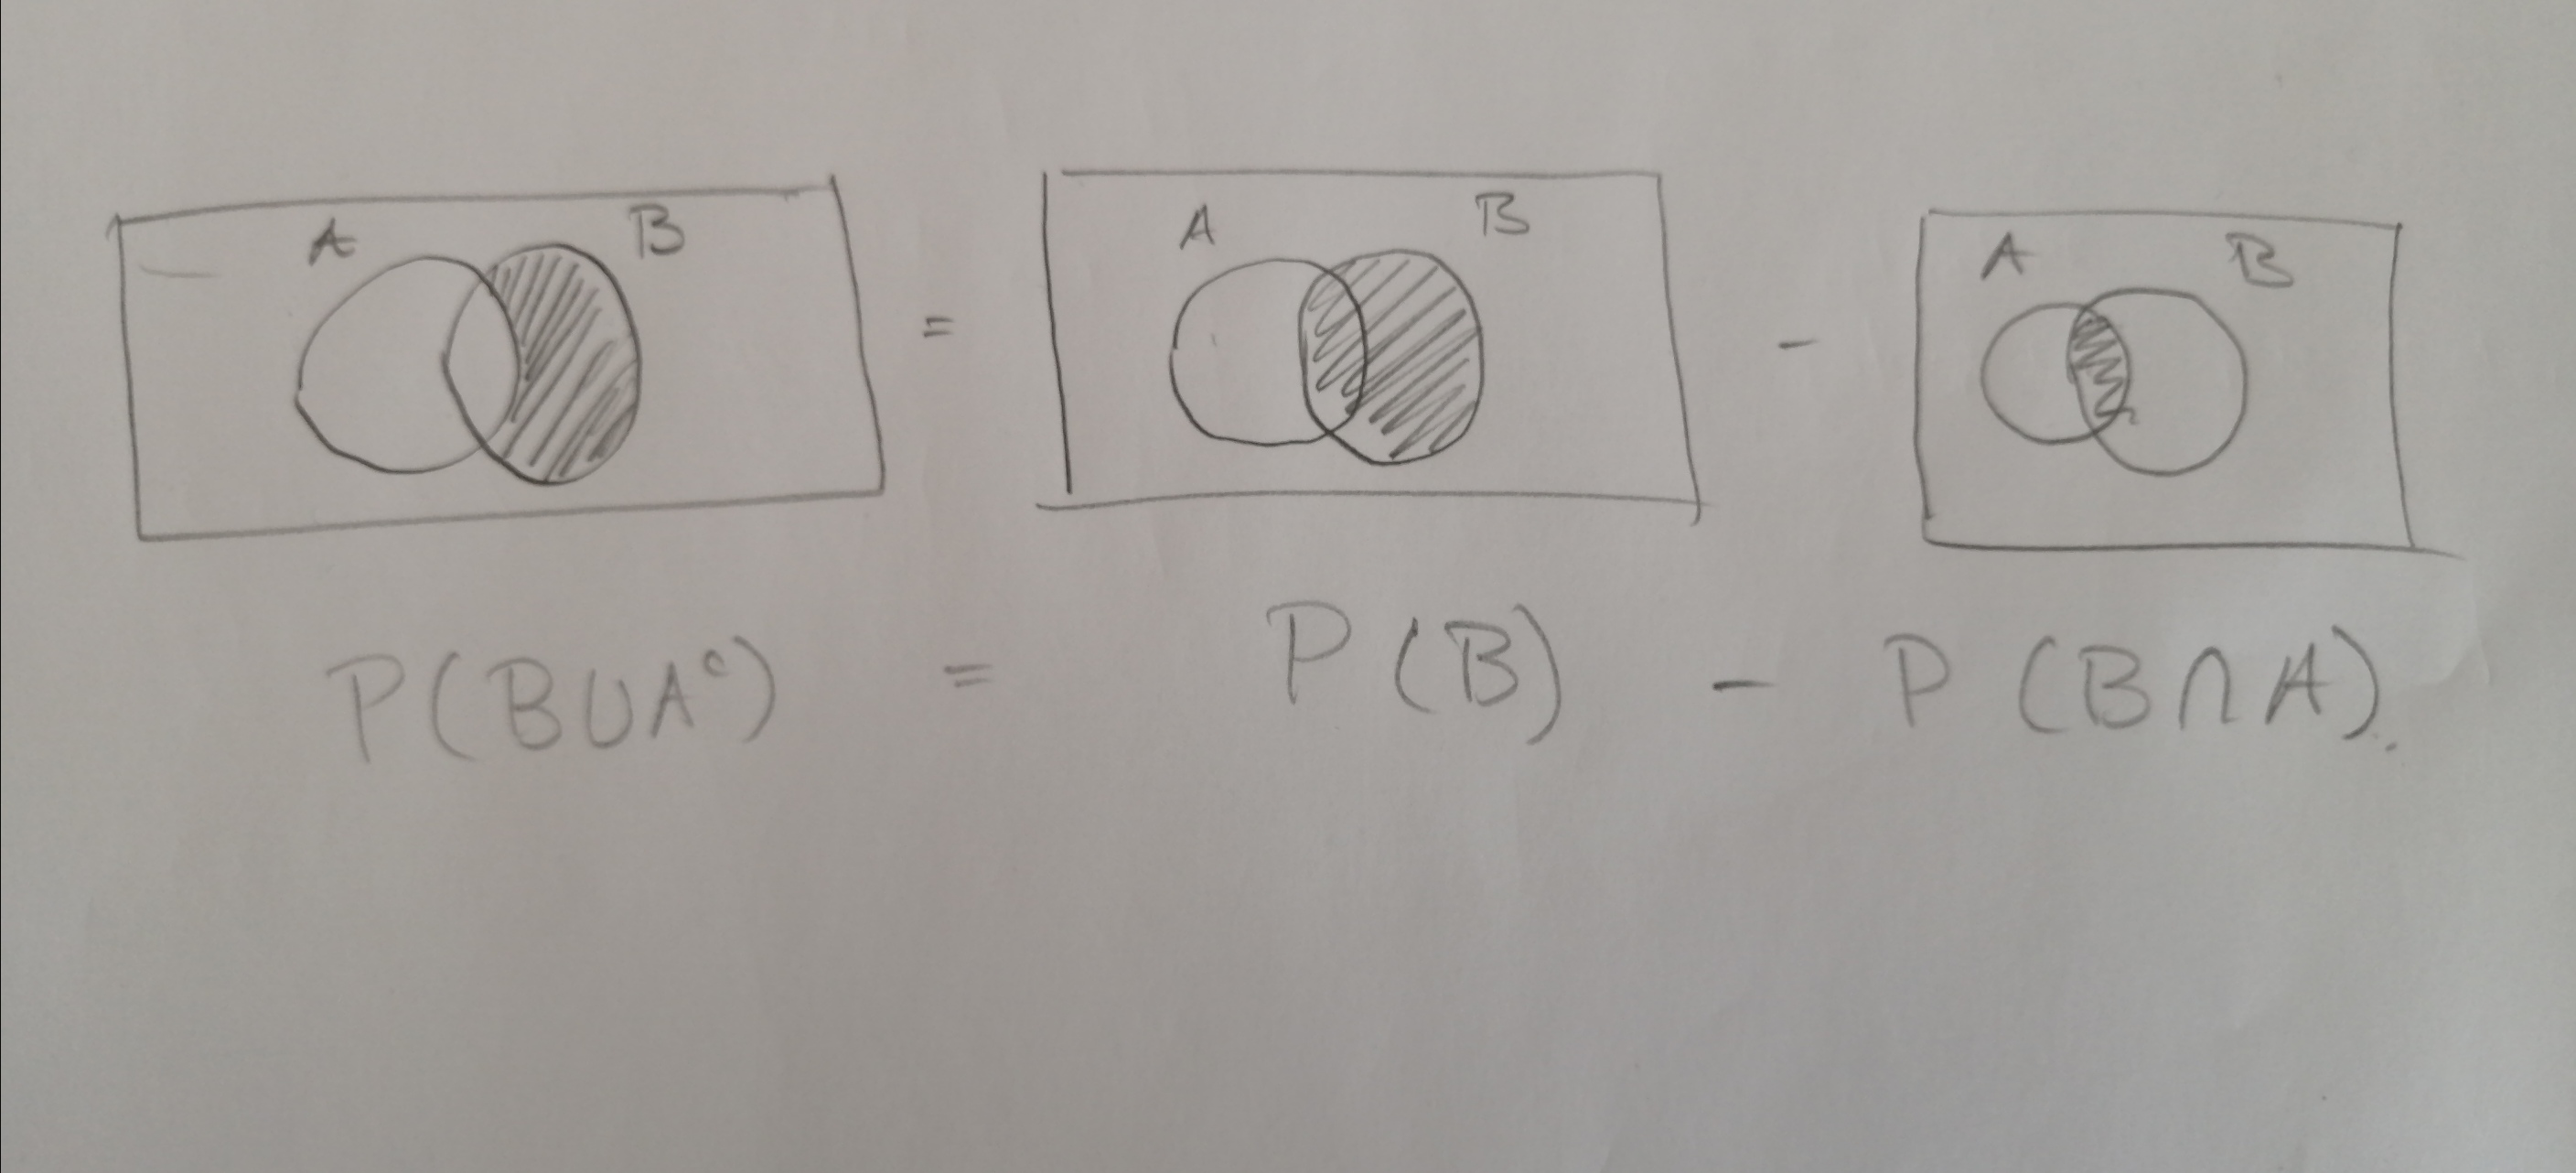 A B = A B - A B
P(B∪Aᶜ) = P(B) - P(B∩A).